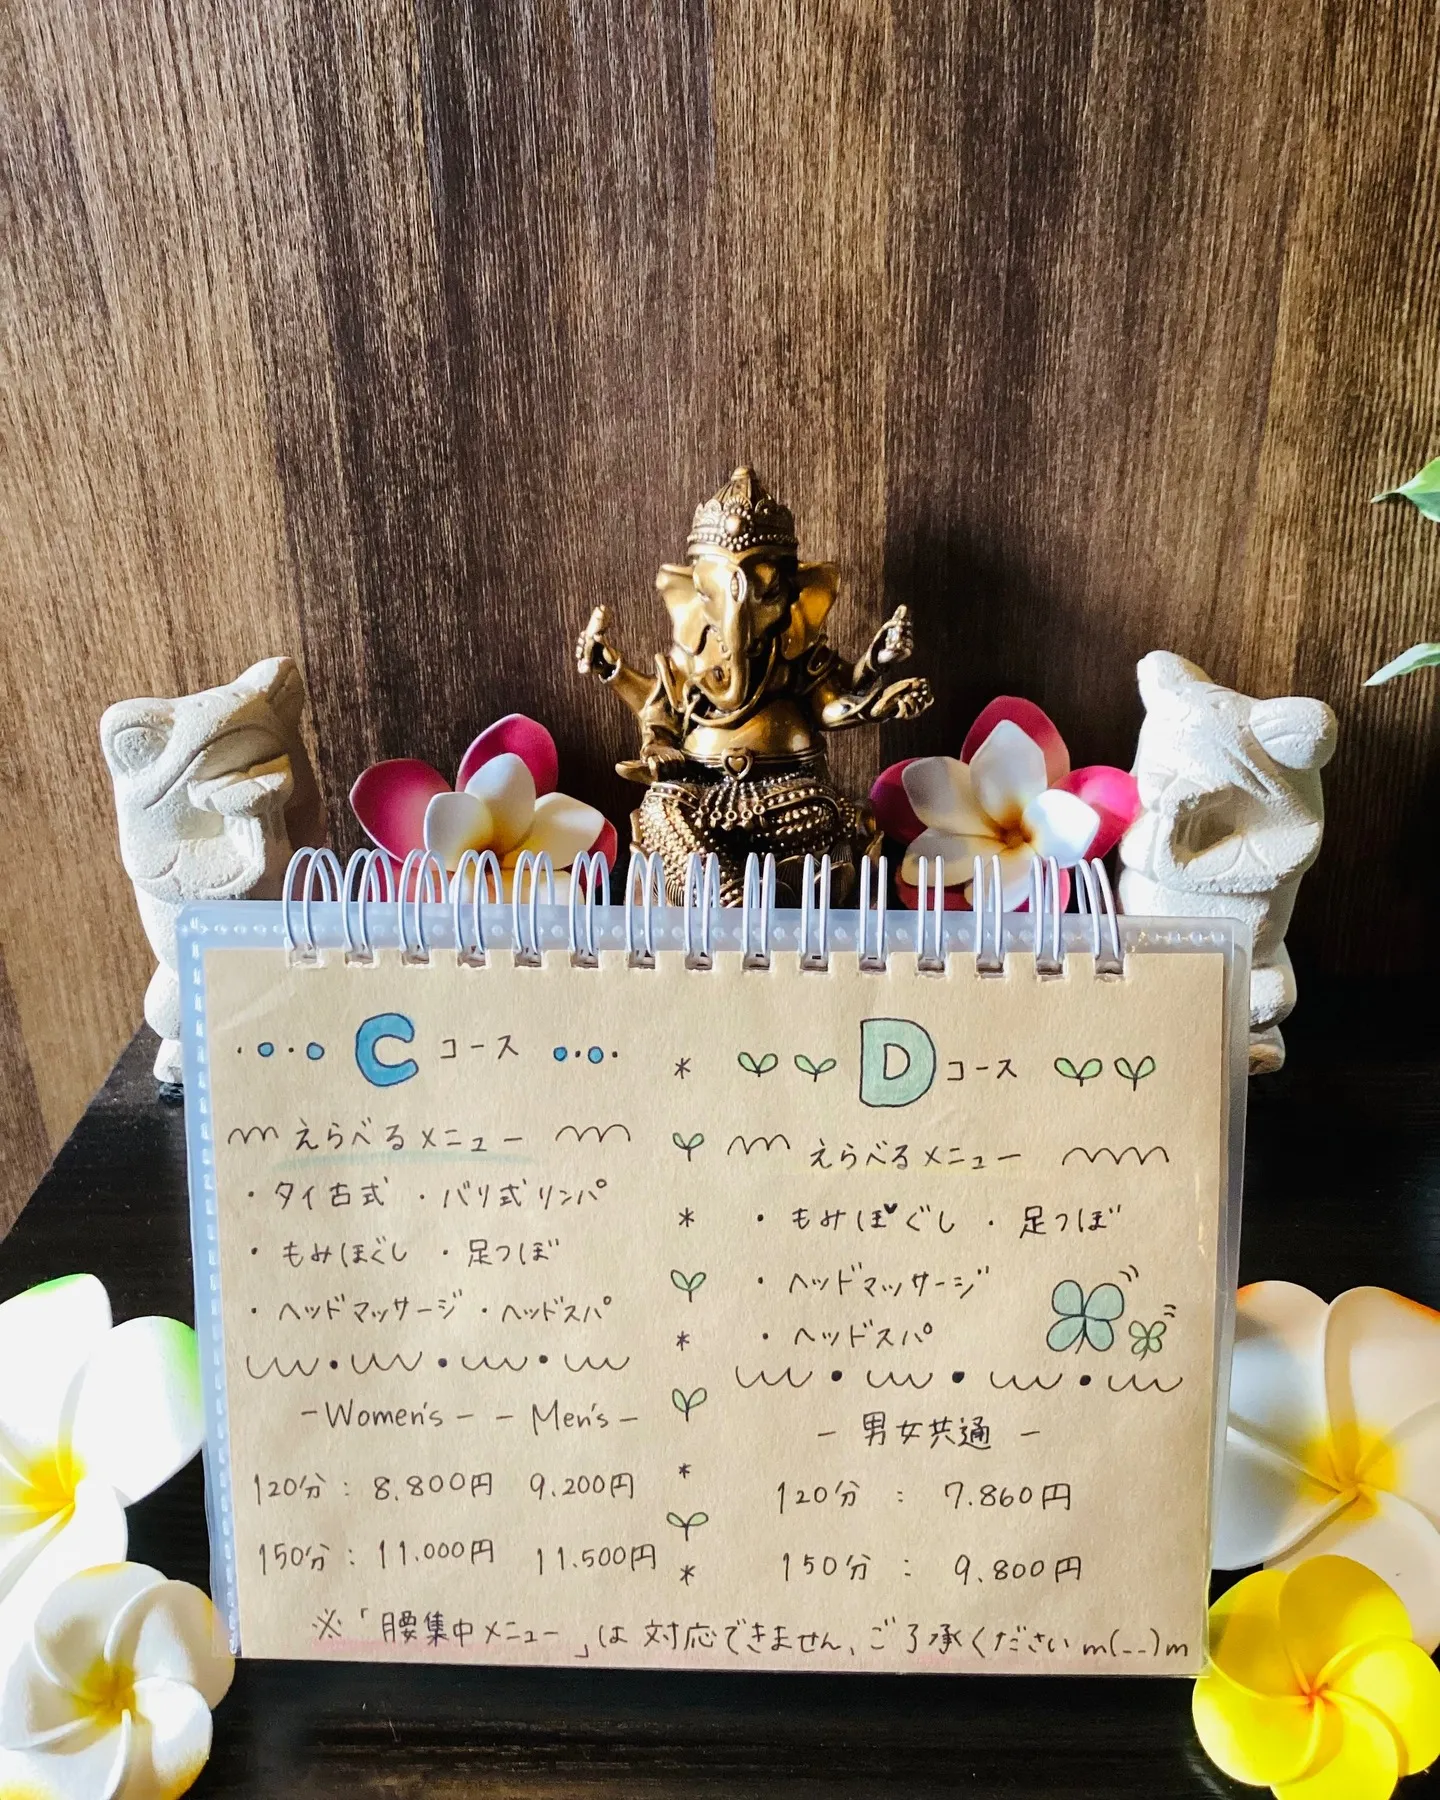 Cコース
えらべるメニュー
・タイ古式 ・バリ式リンパ
・もみほぐし ・足つぼ
・ヘッドマッサージ ・ヘッドスパ
-Women's- -Men's-
120分:8.800円 9.200円
150分:11.000円 11.500円
Dコース
えらべるメニュー
・もみほぐし ・足つぼ
・ヘッドマッサージ
・ヘッドスパ
-男女共通-
120分:7.860円
150分:9.800円
※「腰集中メニュー」は対応できません、ご了承くださいm(_ _)m